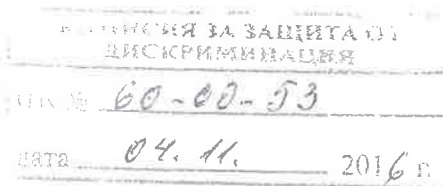 КОМИСИЯ ЗА ЗАЩИТА ОТ
ДИСКРИМИНАЦИЯ
№ 60-00-53
дата 04.11. 2016 г.